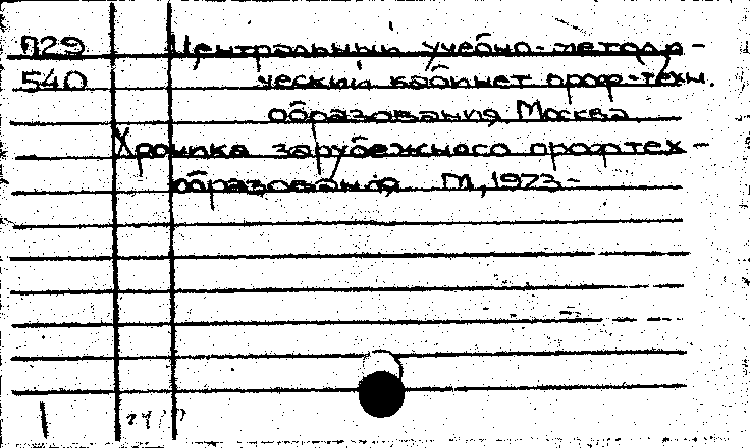 П29 Центральный учебно-методи-
540 ческий кабинет проф-техн.
образования. Москва.
Хроника зарубежного профтех-
образования. М., 1973-